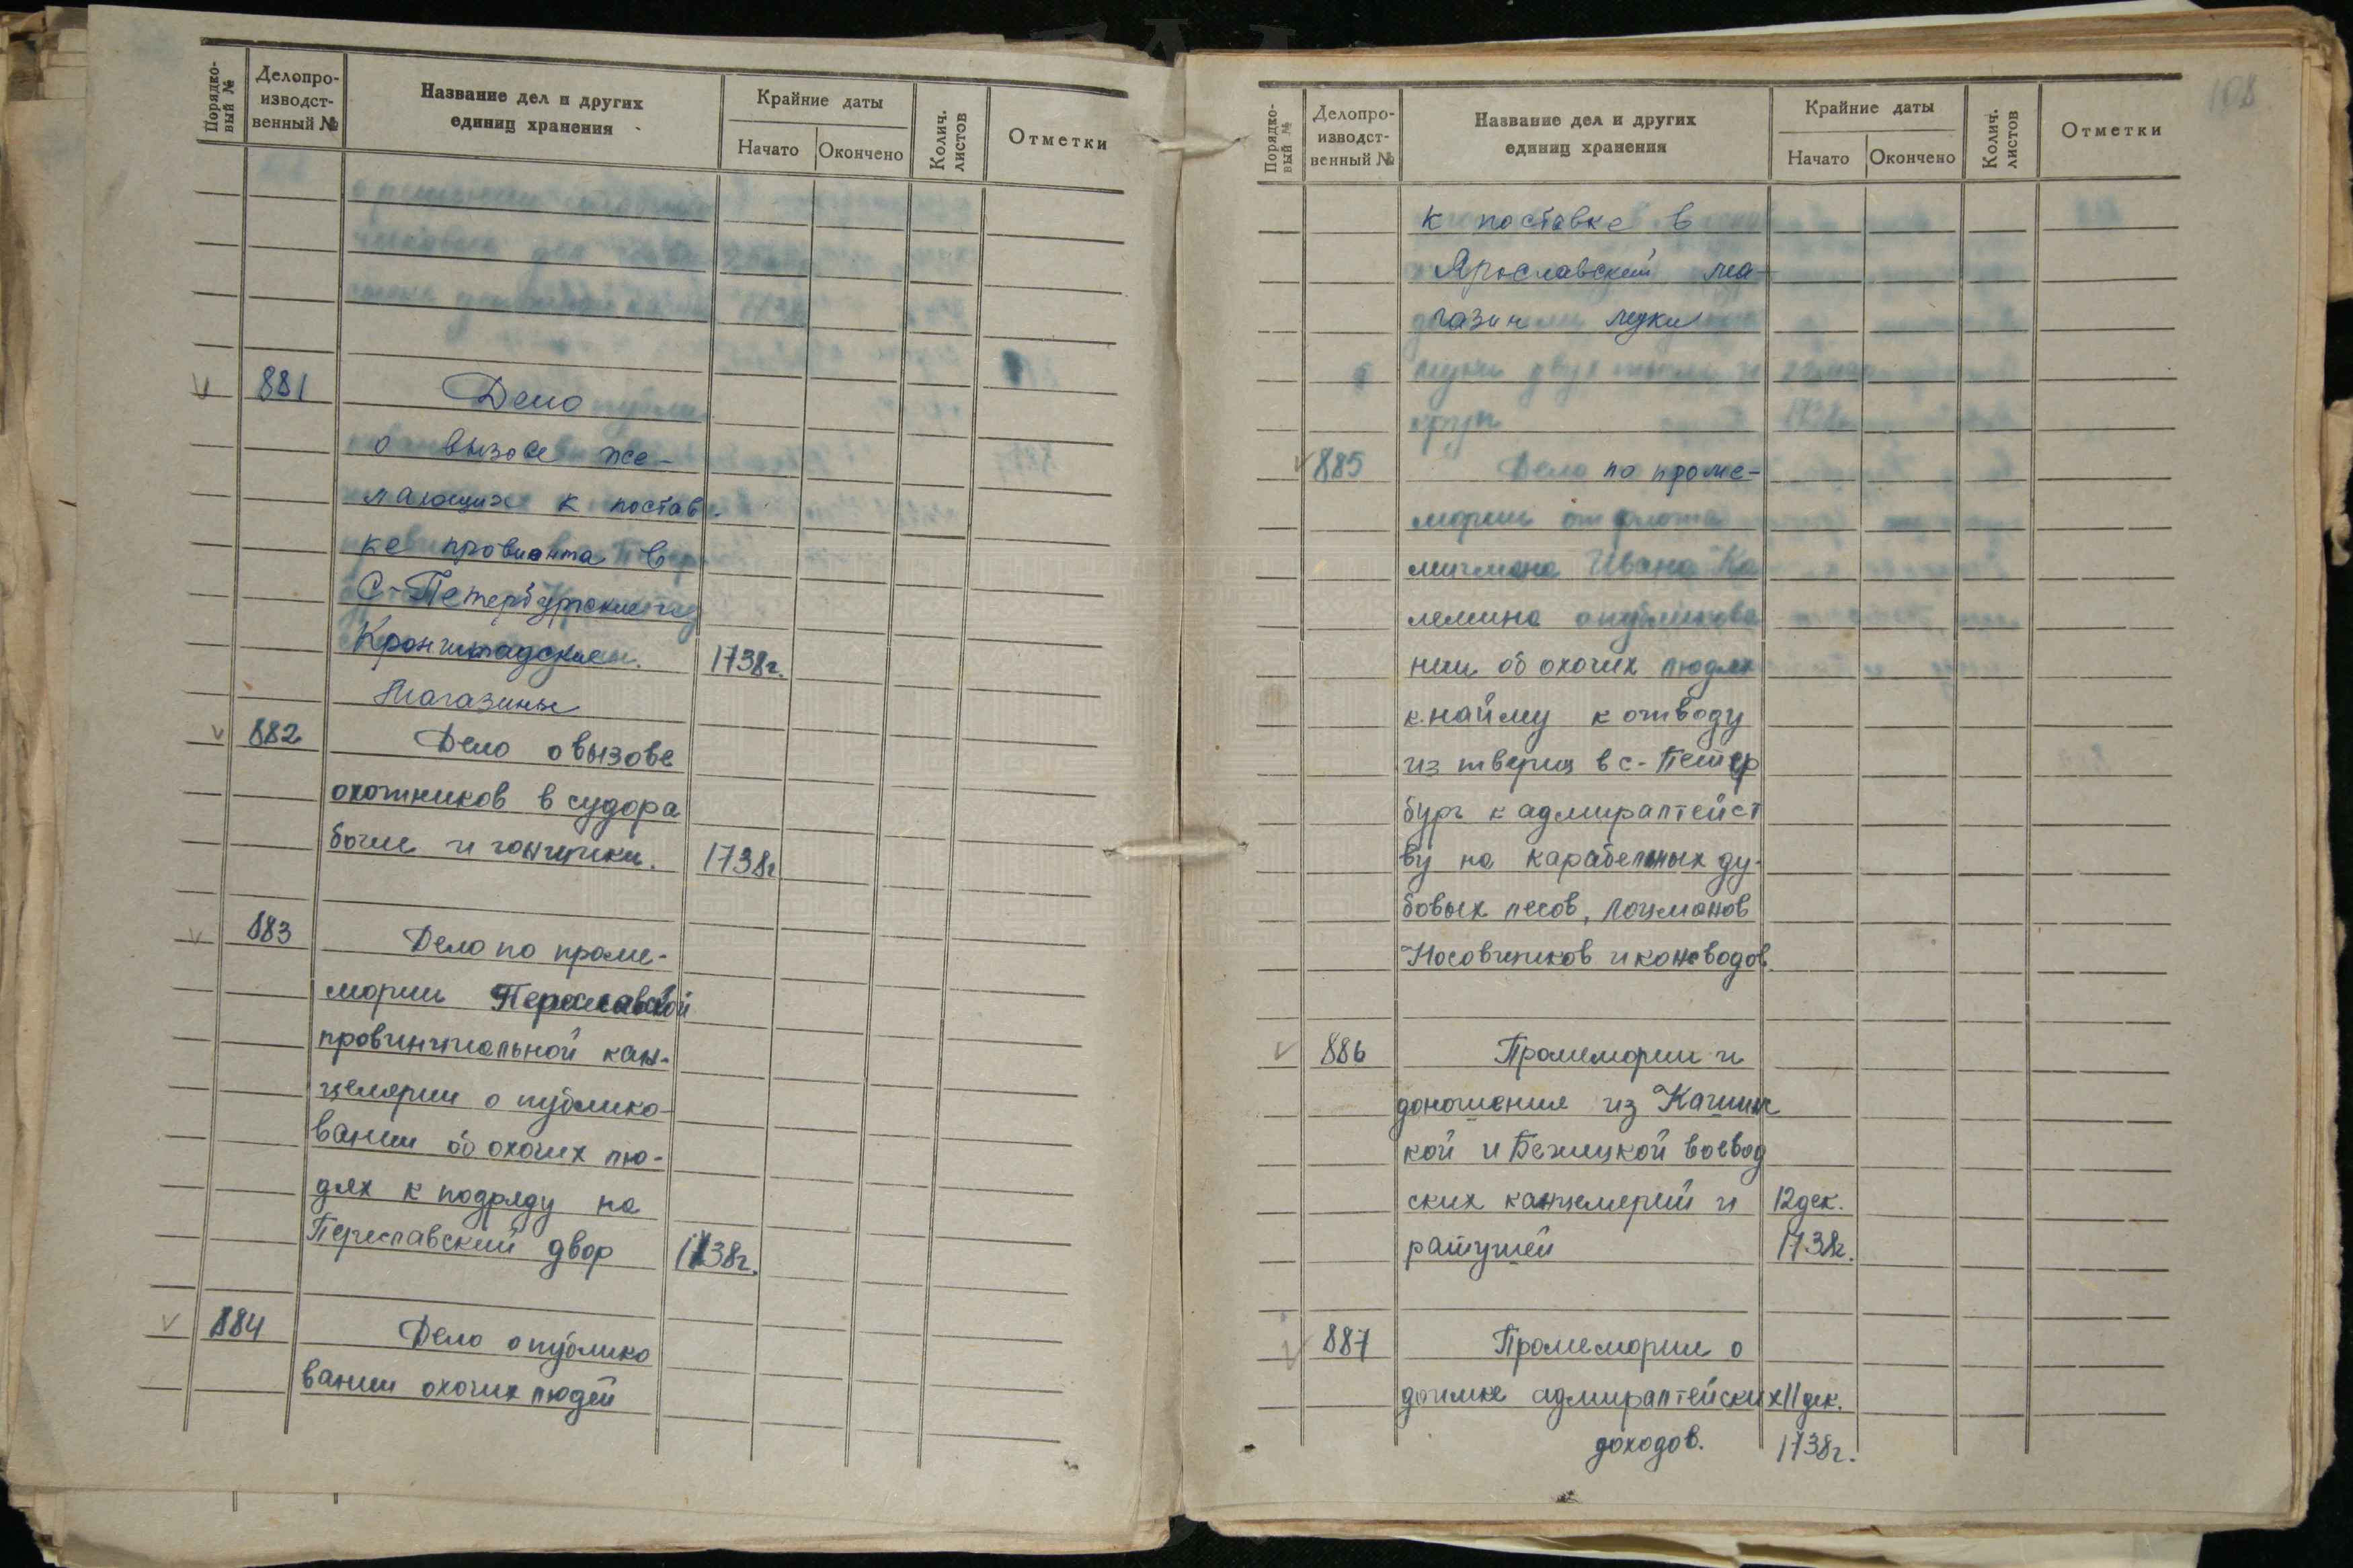 Порядко-
вый №
Делопро-
изводст-
венный №
Название дел и других
единиц хранения
Крайние даты
Начато
Окончено
Колич.
листов
Отметки
881
Дело
о вызове же-
лающих к постав-
ке провианта в
С-Петербургские и
Кронштадские
1738г.
Магазины
882
Дело о вызове
охотников в судора
бочие и гонщики.
1738г
883
Дело по проме-
мории Переславской
провинциальной кан-
целярии о публико-
вании об охочих лю-
дях к подряду на
Переславский двор
1738г.
884
Дело о публико
вании охочих людей
108
Порядко-
вый №
Делопро-
изводст-
венный №
Название дел и других
единиц хранения
Крайние даты
Начато
Окончено
Колич.
листов
Отметки
к поставке в
Ярославский ма-
газин муки
муки двух тысяч и
круп
1738г.
885
Дело по проме-
мории от флота
мичмана Ивана Ка
лемина о публикова
нии об охочих людях
к найму к отводу
из твериц в с-Петер
бург к адмиралтейст
ву на карабельных ду-
бовых лесов, лоцманов
Носовщиков и коноводов.
886
Промемории и
доношения из Кашинс
кой и Бежицкой воевод
ских канцелярий и
12 дек.
ратушей
1738г.
887
Промемории о
доимке адмиралтейских
11 дек.
доходов.
1738г.